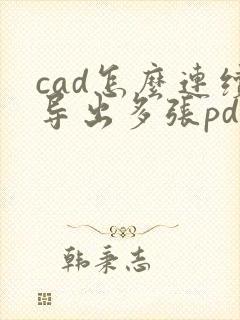 cad怎麽連续
导出多張pd
韩秉志